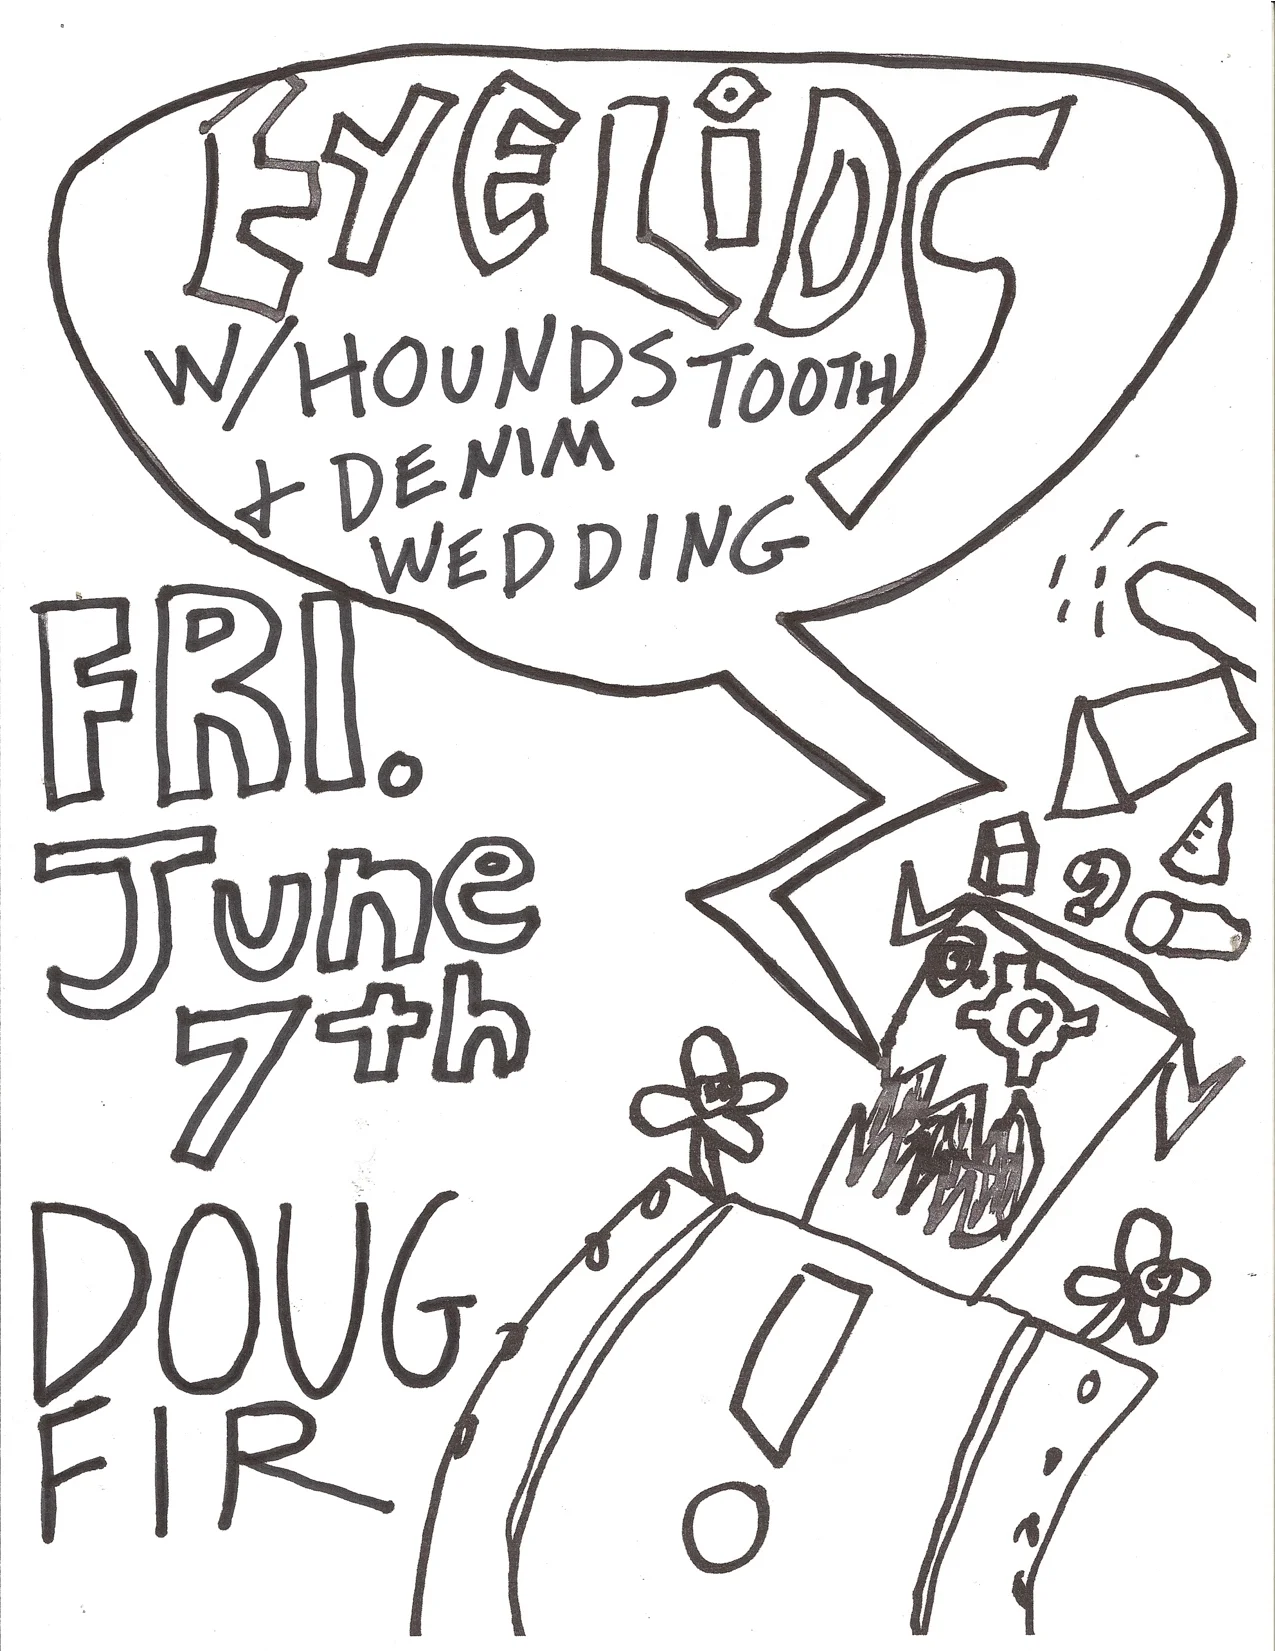 EYELiDS
W/HOUNDSTOOTH
+ DENIM
WEDDING
FRI.
June
7th
DOUG
FIR
!